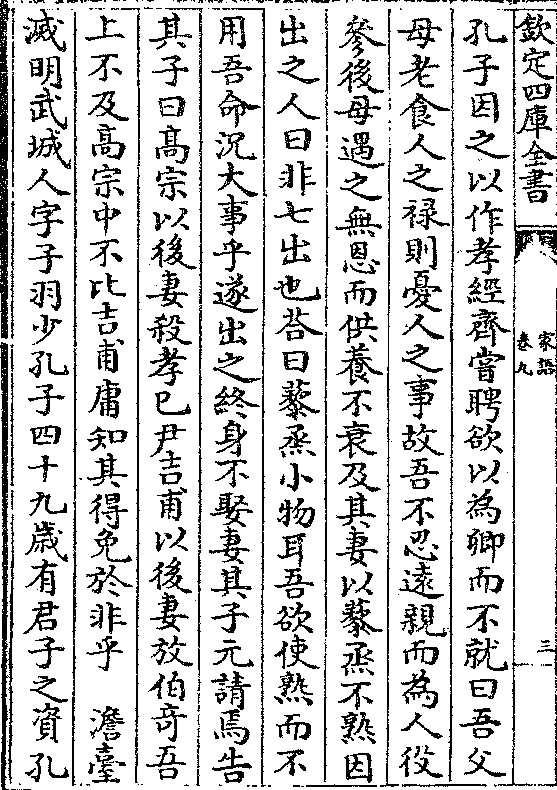 欽定四庫全書
家語
卷九
三
孔子因之以作孝經齊嘗聘欲以為卿而不就曰吾父
母老食人之禄則憂人之事故吾不忍逺親而為人役
參後母遇之無恩而供養不衰及其妻以藜烝不熟因
出之人曰非七出也荅曰藜烝小物耳吾欲使熟而不
用吾命況大事乎遂出之終身不娶妻其子元請焉告
其子曰髙宗以後妻殺孝已尹吉甫以後妻放伯竒吾
上不及髙宗中不比吉甫庸知其得免於非乎　澹臺
滅明武城人字子羽少孔子四十九嵗有君子之資孔